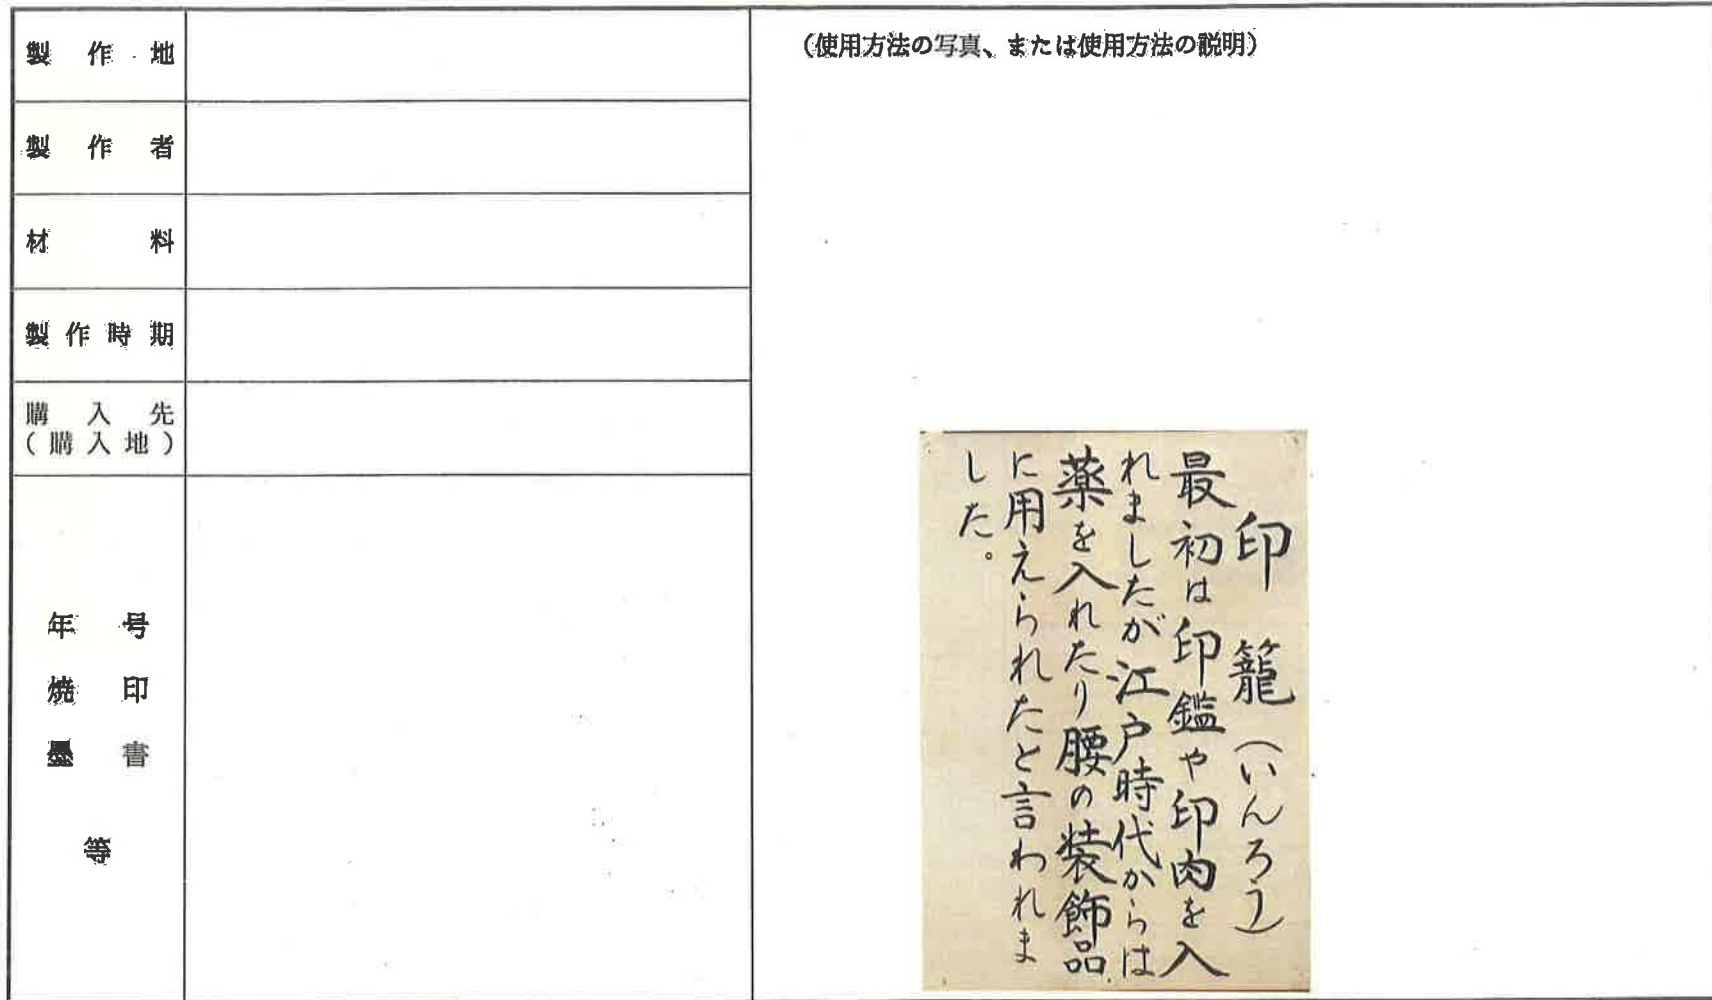 製作地
製作者
材料
製作時期
購入先
(購入地)
年号
焼印
墨書
等
(使用方法の写真、または使用方法の説明)
印籠(いんろう)
最初は印鑑や印肉を入
れましたが江戸時代からは
薬を入れたり腰の装飾品
に用えられたと言われま
した。